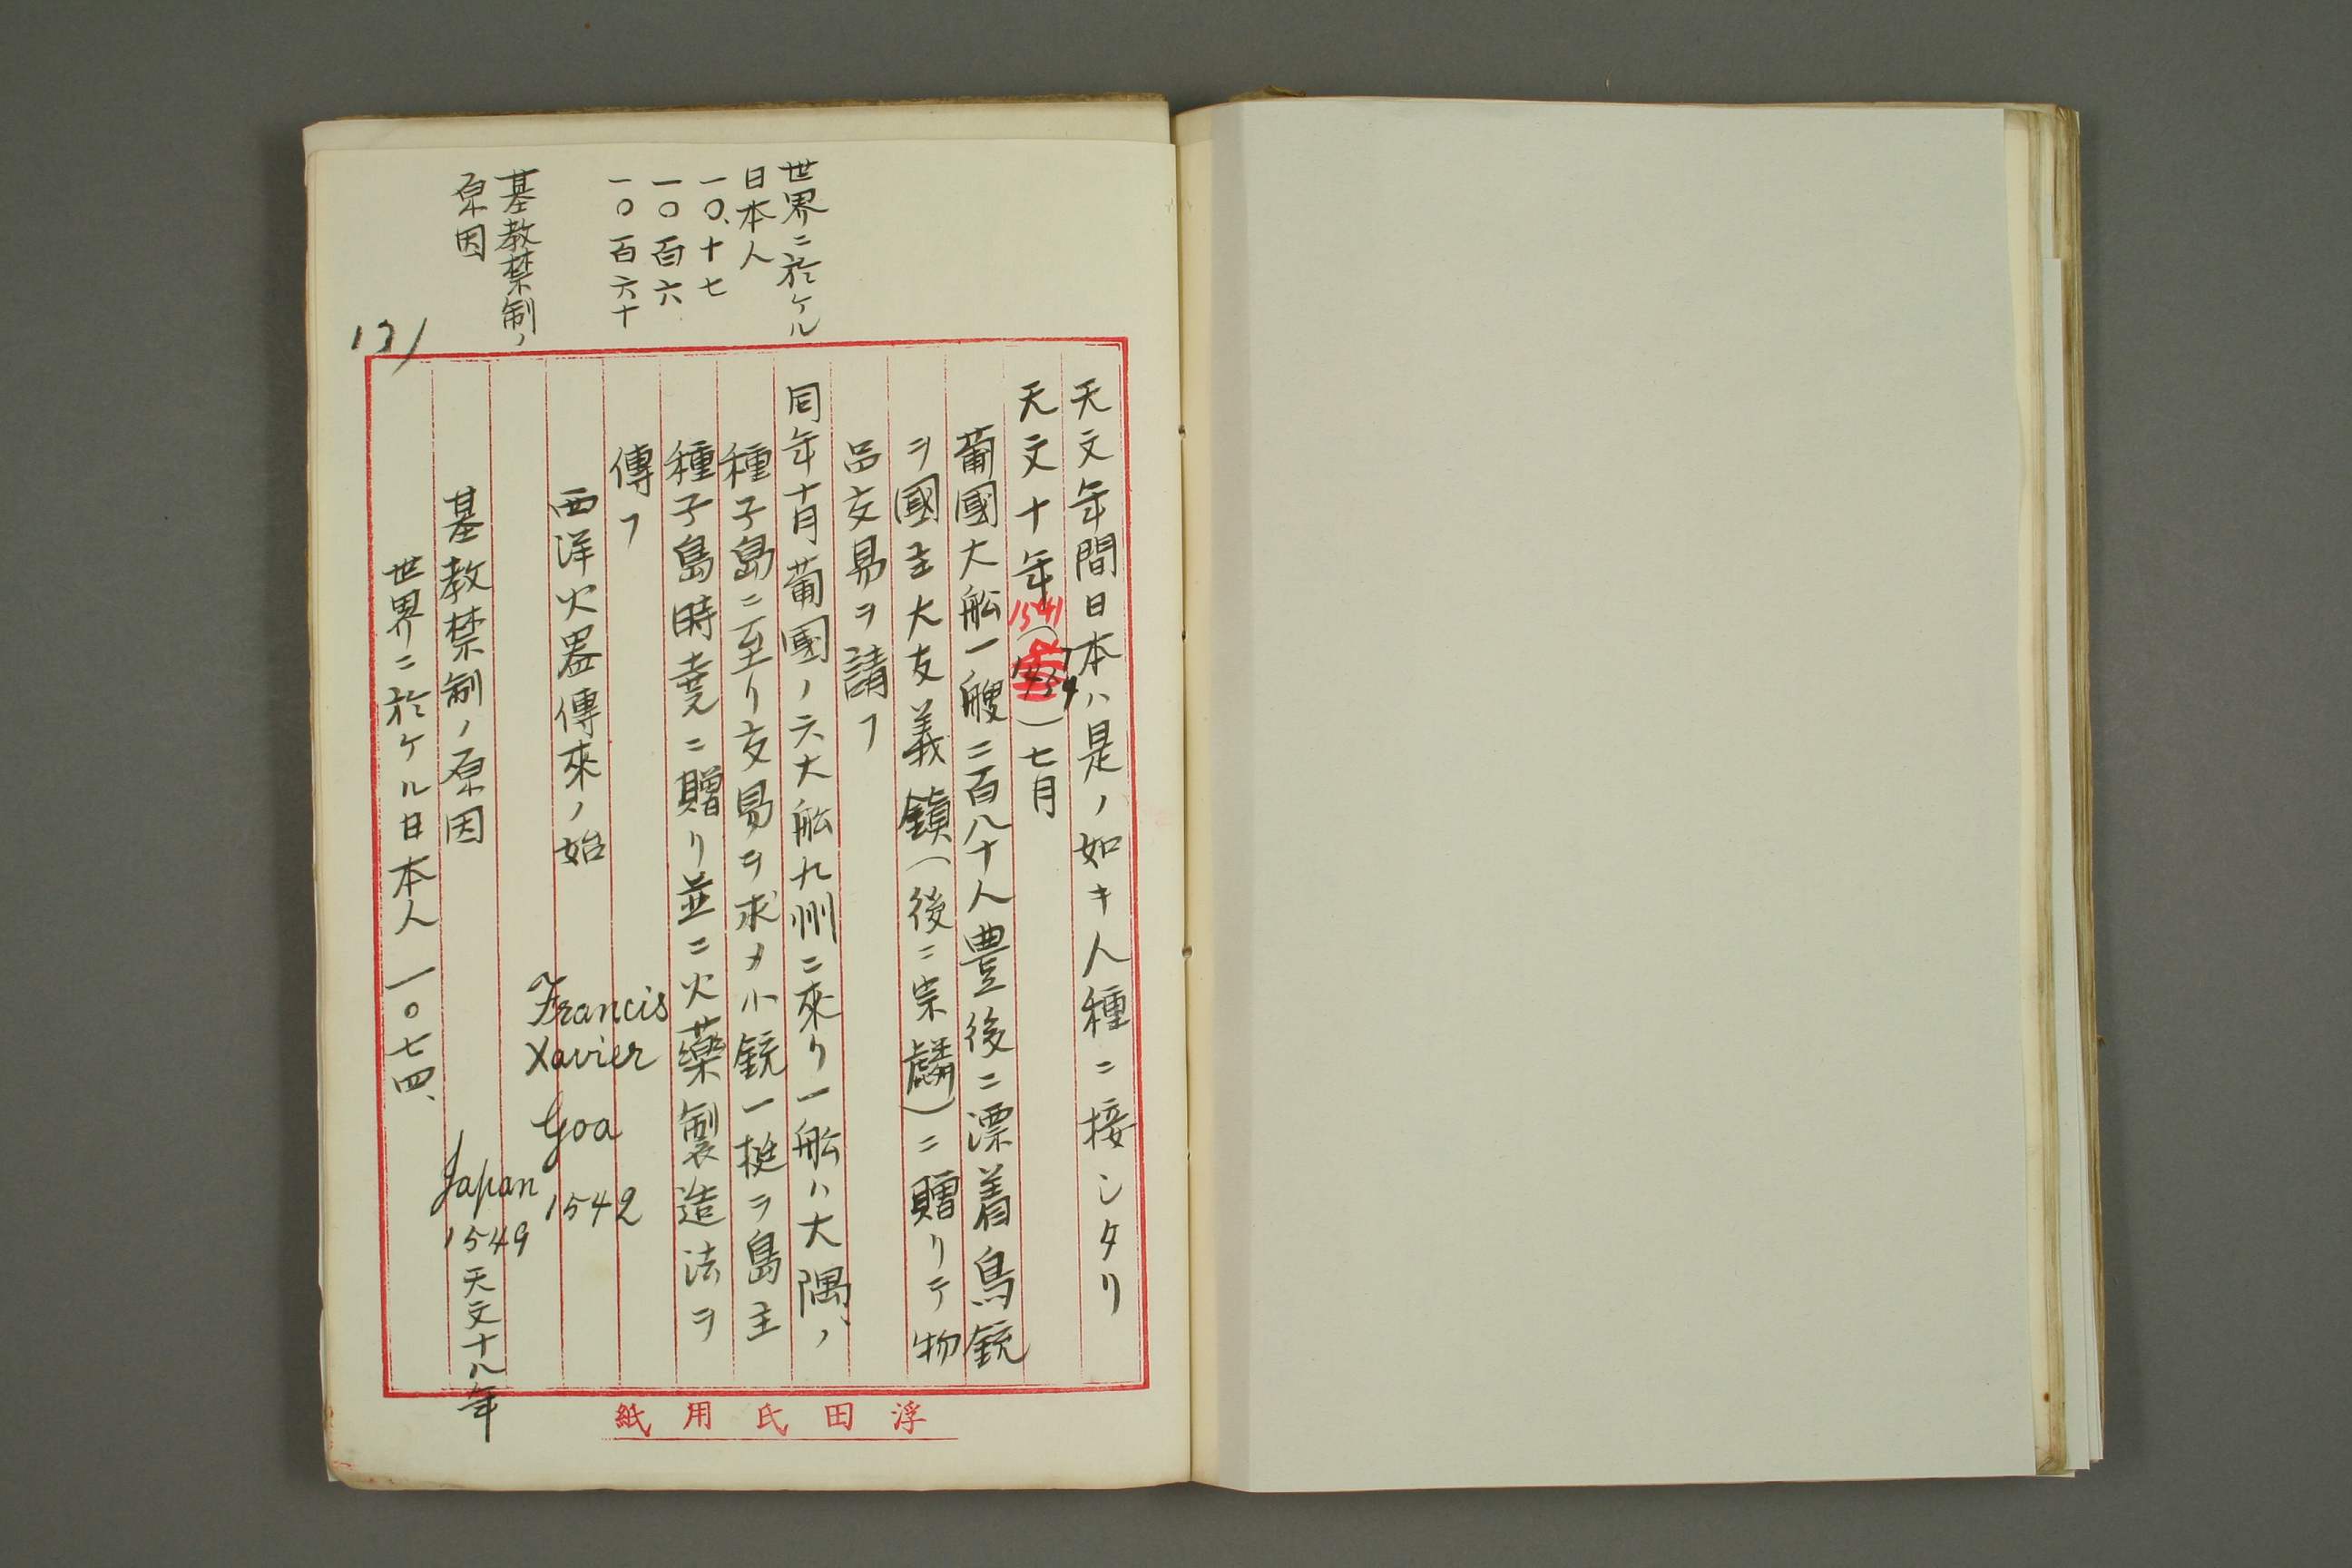 世界ニ於ケル
日本人
一〇、十七
一〇百六
一〇百六十
基教禁制ノ
原因
天文年間日本ハ是ノ如キ人種ニ接シタリ
天文十年(1541)七月
葡國大舩一艘二百八十人豊後ニ漂着鳥銃
ヲ國主大友義鎮(後ニ宗麟)ニ贈リテ物
品交易ヲ請フ
同年十月葡國ノ六大舩九州ニ來リ一舩ハ大隅、ノ
種子島ニ至リ交易ヲ求メ小銃一挺ヲ島主
種子島時尭ニ贈リ並ニ火藥製造法ヲ
傳フ
西洋火器傳來ノ始
Francis
Xavier
Goa
1542
基教禁制ノ原因
Japan
1549
天文十八年
世界ニ於ケル日本人 一〇七四、
浮田氏用紙